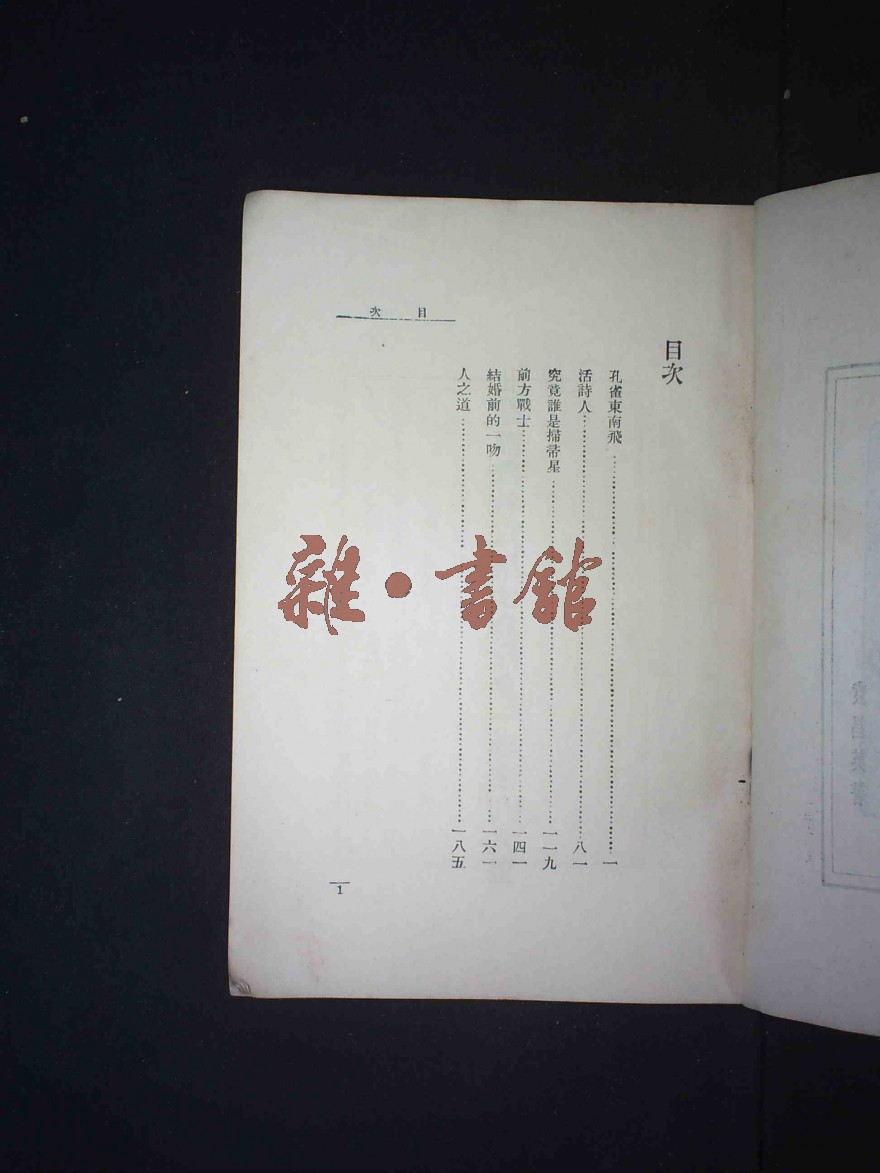 次 目
目次
孔雀東南飛……一
活詩人……八一
究竟誰是掃帚星……一一九
前方戰士……一四一
結婚前的一吻……一六一
人之道……一八五
1
雜·書館